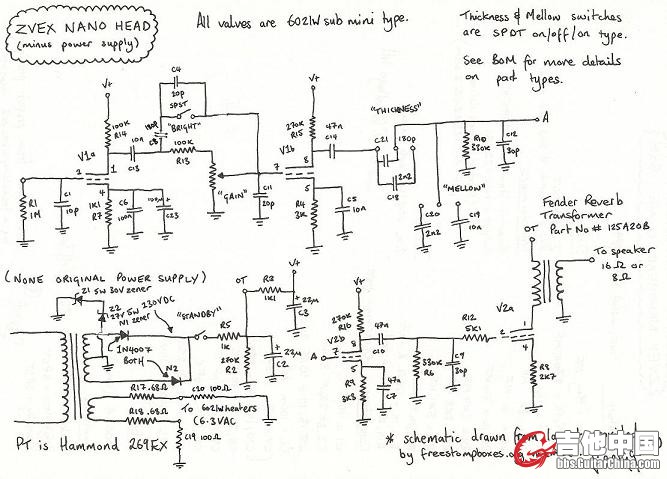 ZVEX NANO HEAD
(minus power supply)
All valves are 6021W sub mini type.
Thickness & Mellow switches
are SPDT on/off/on type.
See BOM for more details
on part types.
V+
100K
R14
C4
20p
SPST
180p
C8
"BRIGHT"
10n
C13
100K
R13
V1a
2
1
4
R1
1M
C1
10p
1K1
R7
C6
100n
100µ
C23
"GAIN"
C11
20p
V+
270K
R15
V1b
7
8
5
R4
3K
C5
10n
47n
C14
"THICKNESS"
C21
180p
2n2
C18
"MELLOW"
C20
2n2
C19
10n
R10
330K
C12
30p
A
Fender Reverb
Transformer
Part No # 125A20B
OT
To speaker
16Ω or
8Ω
(NONE ORIGINAL POWER SUPPLY)
Z1 5W 30V zener
Z2
27V 5W
N1 zener
230VDC
"STANDBY"
1N4007
BOTH
N2
R5
1K
OT
R3
1K1
V+
22µ
C3
270K
R2
22µ
C2
R17.68Ω
C20 100Ω
R18.68Ω
To 6021W heaters
(6.3VAC
C19 100Ω
PT is Hammond 269EX
V+
270K
R16
V2b
A
7
8
5
R9
3K3
47n
C7
47n
C10
330K
R6
C9
30p
R12
5K1
V2a
2
1
4
R8
2K7
* schematic drawn from
by freestompboxes.org
吉他中国
bbs.GuitarChina.com